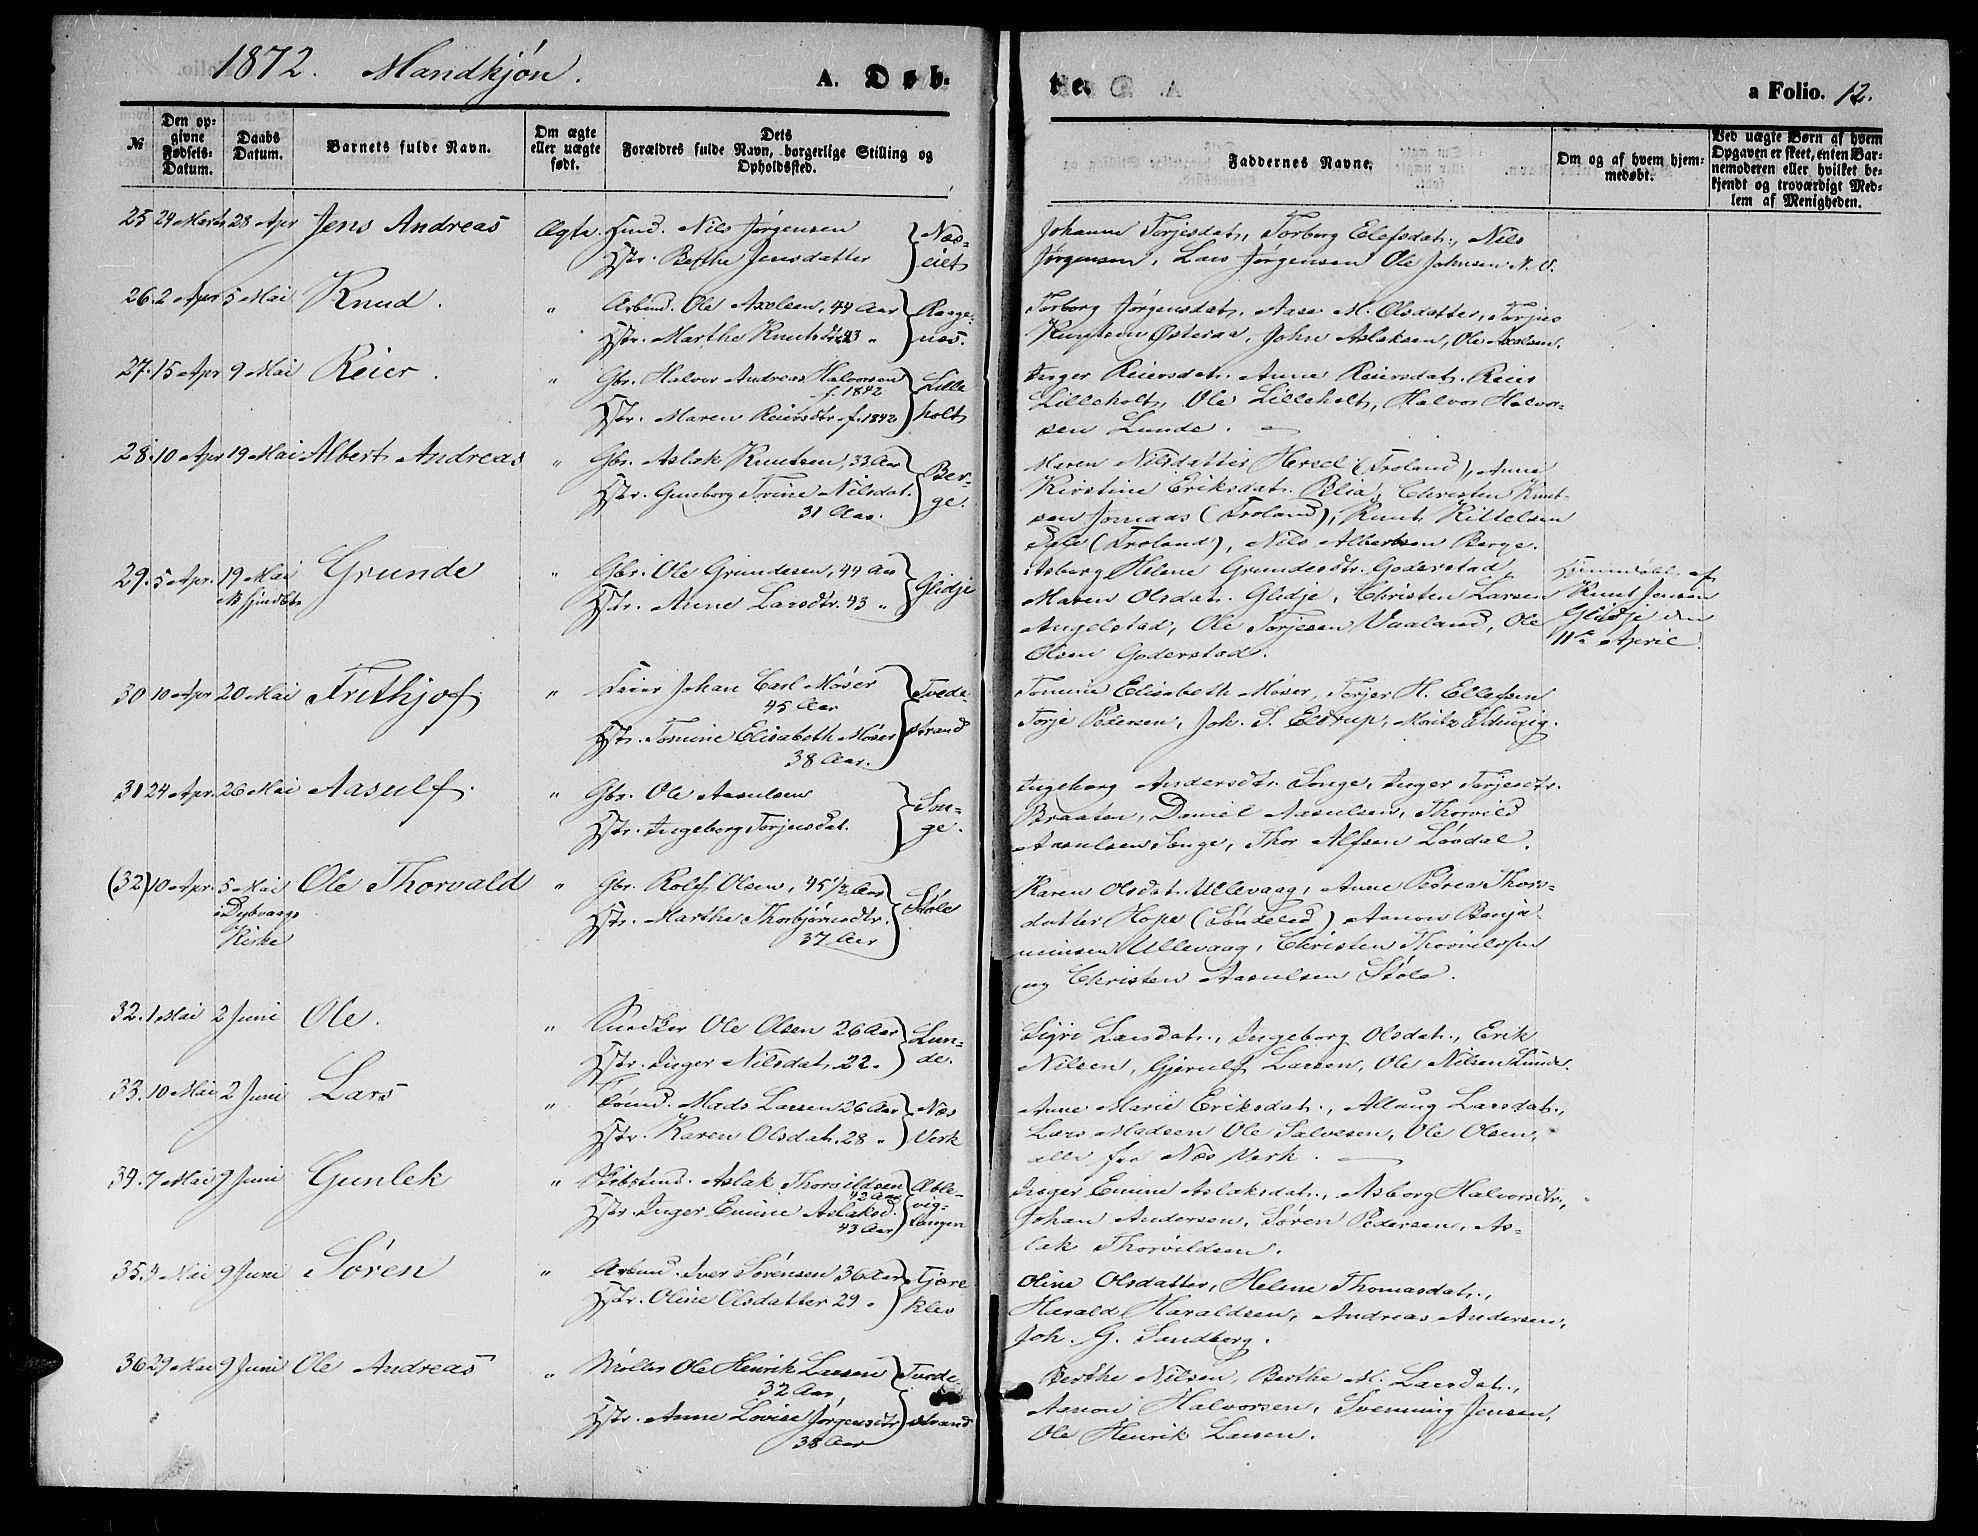 1872. Mandkjön.
A. Døb-
te.
a Folio. 12.
№
Den op-
givne
Fødsels-
Datum.
Daabs
Datum.
Barnets fulde Navn.
Om ægte
eller uægte
født.
Dets
Forældres fulde Navn, borgerlige Stilling og
Opholdssted.
Faddernes Navne.
Om og af hvem hjem-
medøbt.
Ved uægte Børn af hvem
Opgaven er skeet, enten Bar-
nemoderen eller hvilket be-
kjendt og troværdigt Med-
lem af Menigheden.
25 24 Marts 28 Apr Jens Andreas Ægte. Nils Jørgensen
Hstr. Berthe Jensdatter
Næs-
eiet
Johanne Torjesdat., Torborg Elefsdat., Nils
Jørgensen, Lars Jørgensen Ole Johnsen N. V.
26. 2 Apr 5 Mai Knud. " Arbmd. Ole Axelsen, 44 Aar
Hstr. Marthe Knutsdtr. 43 "
Raage-
næs.
Torborg Jørgensdat., Aase M. Olsdatter, Torjus
Knutsen Østeraa, John Aslaksen, Ole Axelsen.
27. 15 Apr 9 Mai Reier. " Gbr. Halvor Andreas Halvorsen
f. 1842
Hstr. Maren Reiersdtr. f. 1842
Lille
holt
Inger Reiersdat. Anne Reiersdat. Reier
Lilleholt, Ole Lilleholt, Halvor Halvor-
sen Lunde.
28. 10 Apr 19 Mai Albert Andreas " Gbr. Aslak Knutsen, 33 Aar
Hstr. Gunborg Torine Nilsdat.
31 Aar.
Ber-
ge.
Maren Nilsdatter Hersel (Froland), Anne
Kirstine Eriksdat. Blia, Christen Knut-
sen Jomaas (Froland), Knut Kittelsen
(Froland), Nils Albertsen Berge.
29. 5 Apr. 19 Mai Grunde " Gbr. Ole Grundesen, 44 Aar
Hstr. Anne Larsdtr. 43 "
Glidje
Asberg Helene Grundesdtr. Goderstad
Maren Olsdat. Glidje, Christen Larsen
Angelstad, Ole Torjesen Vaaland, Ole
Olsen Goderstad.
Hjemdøbt af
Knut Jensen
Glidje den
11te April
30 10 Apr 20 Mai Frithjof " Feier Johan Carl Möser
45 Aar
Hstr. Tomine Elisabeth Möser
38 Aar.
Tvede-
strand
Tomine Elisabeth Möser, Terjer H. Ellefsen
Torje Pedersen, Joh. S. Eldrup, Moritz
31 24 Apr. 26 Mai Aasulf. " Gbr. Ole Aasulsen
Hstr. Ingeborg Torjusdat.
Son-
ge.
Ingeborg Andersdtr. Songe, Inger Torjesdtr.
Braaten, Daniel Aasulsen, Thorvild
Aasulsen Songe, Thor Alfsen Lövdal.
(32) 10 Apr. 5 Mai Ole Thorvald " Gbr. Rolef Olsen, 45 1/2 Aar
i Dybvaags
Kirke
Hstr. Marthe Thorbjørnsdtr.
37 Aar
Støle
Karen Olsdat. Ullevaag, Anne Petrea Thors-
datter Hope (Søndeled) Aanon Benja-
minsen Ullevaag, Christen Thorvildsen
og Christen Aasulsen Støle.
32. 1 Mai 2 Juni Ole. " Snedker Ole Olsen 26 Aar
Hstr. Inger Nilsdat. 22 "
Lun-
de.
Sigri Larsdat., Ingeborg Olsdat., Erik
Nilsen, Gjerulf Larsen, Ole Nilsen Lunde.
33. 10 Mai 2 Juni Lars " Mads Larsen 26 Aar
Hstr. Karen Olsdat. 28 "
Næs
Verk
Anne Marie Eriksdat., Allaug Larsdat.,
Lars Madsen Ole Salvesen, Ole Olsen,
alle fra Næs Verk.
34. 7 Mai 9 Juni Gunlek " Aslak Thorvildsen
42 Aar
Hstr. Inger Emine Aslaksd.
43 Aar
Æble-
vig-
tangen
Inger Emine Aslaksdat., Asborg Halvorsdtr.,
Johan Andersen, Søren Pedersen, As-
lak Thorvildsen.
35. 4 Mai 9 Juni Søren " Arbmd. Iver Sørensen 36 Aar
Hstr. Oline Olsdatter 29 "
Tjære
klev
Oline Olsdatter, Helene Thomasdat.,
Harald Haraldsen, Andreas Andersen,
Joh. G. Sandberg.
36 29 Mai 9 Juni Ole Andreas " Møller Ole Henrik Larsen
32 Aar,
Hstr. Anne Lovise Jørgensdtr
38 Aar
Tvede-
strand
Berthe Nilsen, Berthe M. Larsdat.,
Aanon Halvorsen, Svenning Jensen,
Ole Henrik Larsen.